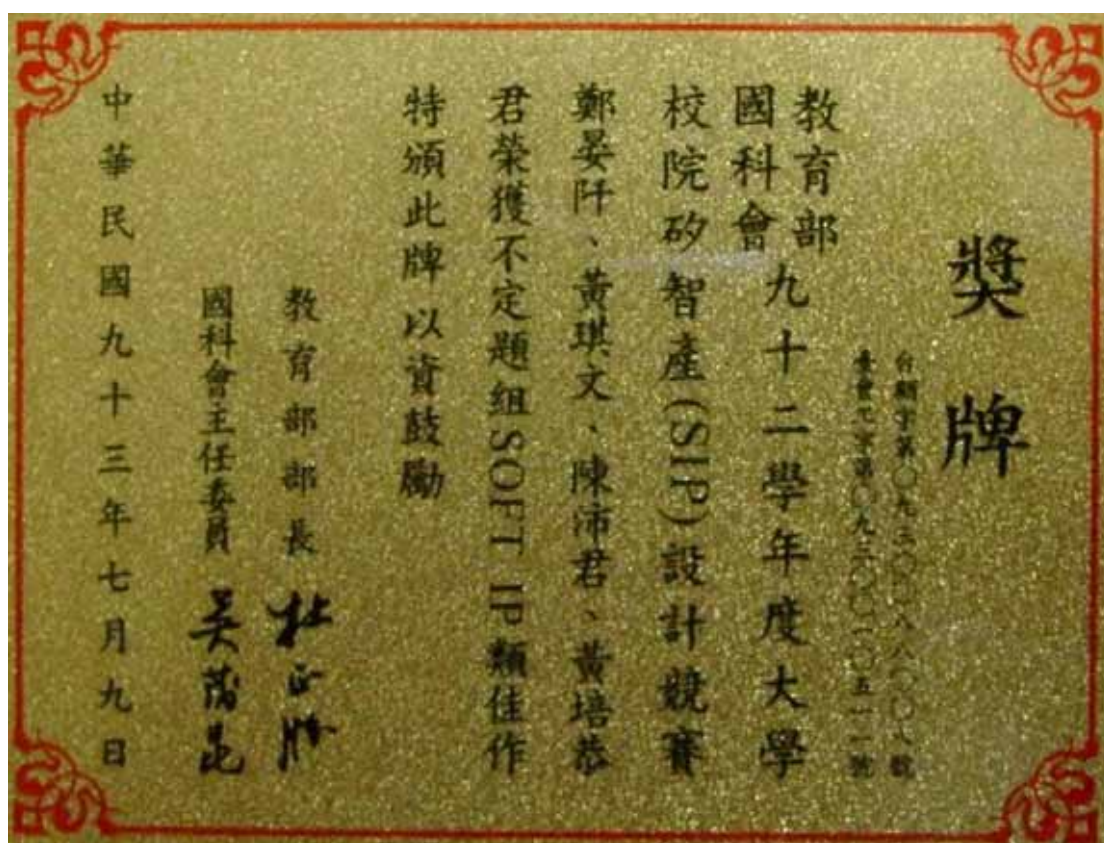 獎牌
台顧字第〇九三〇〇八八〇〇八號
臺會工字第〇九三〇〇二〇五一一號
教育部
國科會
九十二學年度大學
校院矽智產(SIP)設計競賽
鄭晏阡、黃琪文、陳沛君、黃培恭
君榮獲不定題組SOFT IP類佳作
特頒此牌以資鼓勵
教育部部長 杜正勝
國科會主任委員 吳茂昆
中華民國九十三年七月九日